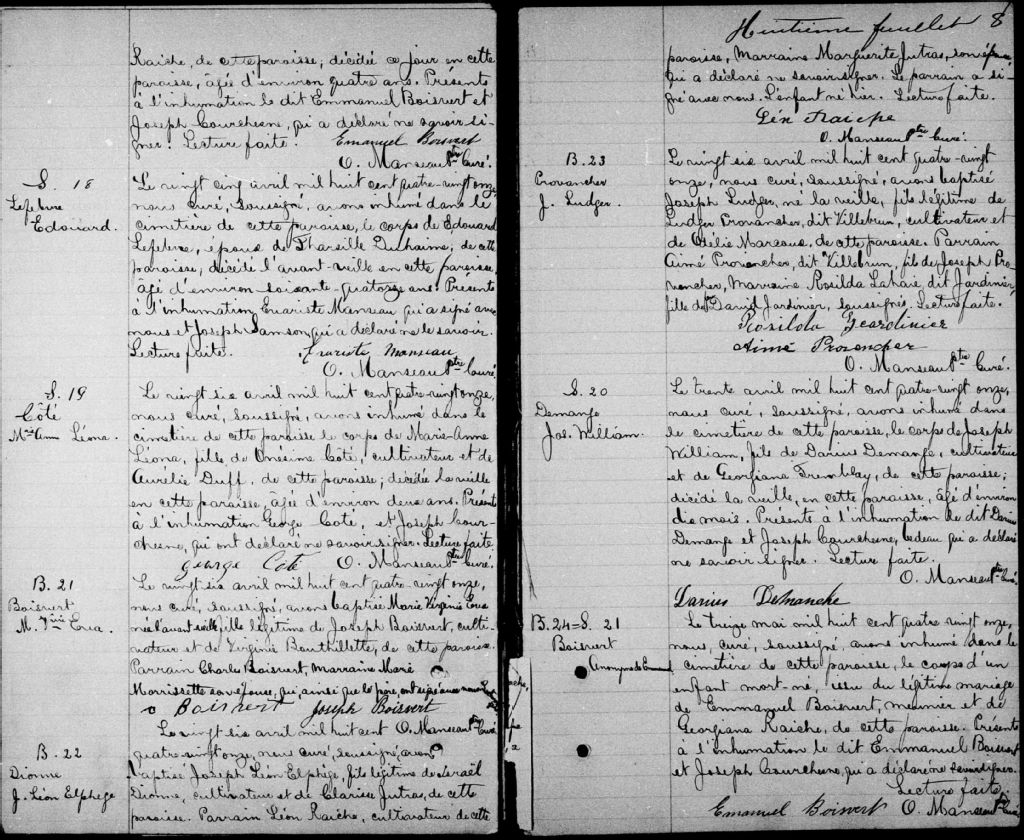 Raiche, de cette paroisse, décédée ce jour en cette
paroisse, âgée d'environ quatre ans. Présents
à l'inhumation le dit Emmanuel Boisvert et
Joseph Courchesne, qui a déclaré ne savoir si-
gner. Lecture faite. Emanuel Boisvert
O. Manseau Ptre Curé.
S. 18
Lefebvre
Edouard.
Le vingt cinq avril mil huit cent quatre-vingt onze,
nous curé, soussigné, avons inhumé dans le
cimetière de cette paroisse, le corps de Edouard
Lefebvre, époux de Tharsille Duhaime, de cette
paroisse, décédé l'avant-veille en cette paroisse,
âgé d'environ soixante-quatorze ans. Présents
à l'inhumation Evariste Manseau qui a signé avec
nous et Joseph Samson qui a déclaré ne le savoir.
Lecture faite. Evariste Manseau
O. Manseau Ptre Curé.
S. 19
Côté
Mie Anne Léona.
Le vingt six avril mil huit cent quatre-vingt onze,
nous curé, soussigné, avons inhumé dans le
cimetière de cette paroisse le corps de Marie-Anne
Léona, fille de Onésime Coté, cultivateur et de
Aurélie Duff, de cette paroisse; décédée la veille
en cette paroisse, âgée d'environ deux ans. Présents
à l'inhumation George Coté, et Joseph Cour-
chesne, qui ont déclaré ne savoir signer. Lecture faite
George Coté O. Manseau Ptre Curé.
B. 21
Boisvert
M. Vinie Eva.
Le vingt six avril mil huit cent quatre-vingt onze,
nous curé, soussigné, avons baptisé Marie Virginie Eva
née l'avant veille, fille légitime de Joseph Boisvert, culti-
vateur et de Virginie Bouthillette, de cette paroisse.
Parrain Charles Boisvert, marraine Marie
Morrissette son épouse, qui ainsi que le père, ont signé avec nous
o Boisvert Joseph Boisvert
O. Manseau Ptre Curé
B. 22
Dionne
J. Léon Elphege
Le vingt six avril mil huit cent
quatre-vingt onze, nous curé, soussigné, avons
baptisé Joseph Léon Elphège, fils légitime de Israël
Dionne, cultivateur et de Clarisse Jutras, de cette
paroisse. Parrain Léon Raiche, cultivateur de cette
Huitième feuillet 8
paroisse, Marraine Marguerite Jutras, son épouse
qui a déclaré ne savoir signer. Le parrain a si-
gné avec nous. L'enfant né hier. Lecture faite.
Léon Raiche
O. Manseau Ptre Curé.
B. 23
Provancher
J. Ludger.
Le vingt six avril mil huit cent quatre-vingt
onze, nous curé, soussigné, avons baptisé
Joseph Ludger, né la veille, fils légitime de
Ludger Provancher, dit Villebrun, cultivateur et
de Odélie Marcoux, de cette paroisse. Parrain
Aimé Provancher, dit Villebrun, fils de Joseph Pro-
vencher, Marraine Rosilda Lahaie, dit Jardinier,
fille de David Jardinier, soussignés. Lecture faite.
Rosilda Jeardinier
Aimé Provencher
O. Manseau Ptre Curé.
S. 20
Demange
Jos. William.
Le trente avril mil huit cent quatre-vingt onze,
nous curé, soussigné, avons inhumé dans
le cimetière de cette paroisse, le corps de Joseph
William, fils de Darius Demange, cultivateur
et de Georgiana Tremblay, de cette paroisse;
décédé la veille, en cette paroisse, âgé d'environ
dix mois. Présents à l'inhumation le dit Darius
Demange et Joseph Courchesne, bedeau qui a déclaré
ne savoir signer. Lecture faite.
O. Manseau Ptre Curé
Darius Demanche
B. 24=S. 21
Boisvert
Anonyme de Emmanuel
Le treize mai mil huit cent quatre vingt onze,
nous, curé, soussigné, avons inhumé dans le
cimetière de cette paroisse, le corps d'un
enfant mort-né, issu du légitime mariage
de Emmanuel Boisvert, meunier et de
Georgiana Raiche, de cette paroisse. Présents
à l'inhumation le dit Emmanuel Boisvert
et Joseph Courchesne, qui a déclaré ne savoir signer.
Lecture faite.
Emanuel Boisvert O. Manseau Ptre Curé